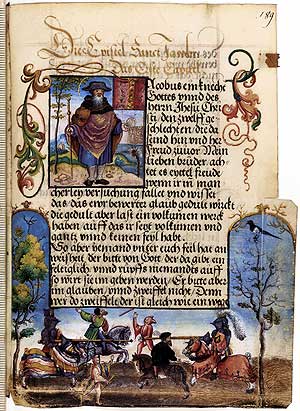 189
Die Epistel Sanct Jacobi
Das Erste Capitel
Acobus ein knecht
Gottes vnnd des
herrn Jhesu Chri-
sti, den zwelff ge-
schlechten, die da
sind hin vnd her
Freud zuuor Mein
lieben brüder, ach-
tes eyttel freude
wenn ir in man
cherley versuchung fallet vnd wisset
das, das ewr bewerter glaub gedult wirckt
die gedult aber last ein volkumen werck
haben auff das ir seyt volkumen vnd
gantz vnnd keinen feil habt
So aber yemand vnter euch feil hat an
weisheit, der bitte von Gott, der da gibt ein
feltiglich, vnd ruffts niemands auff
so wirt sie im geben werden, Er bitte aber
im glauben, vnnd zweiffel nicht, Denn
wer do zweiffelt, der ist gleich wie ein wag